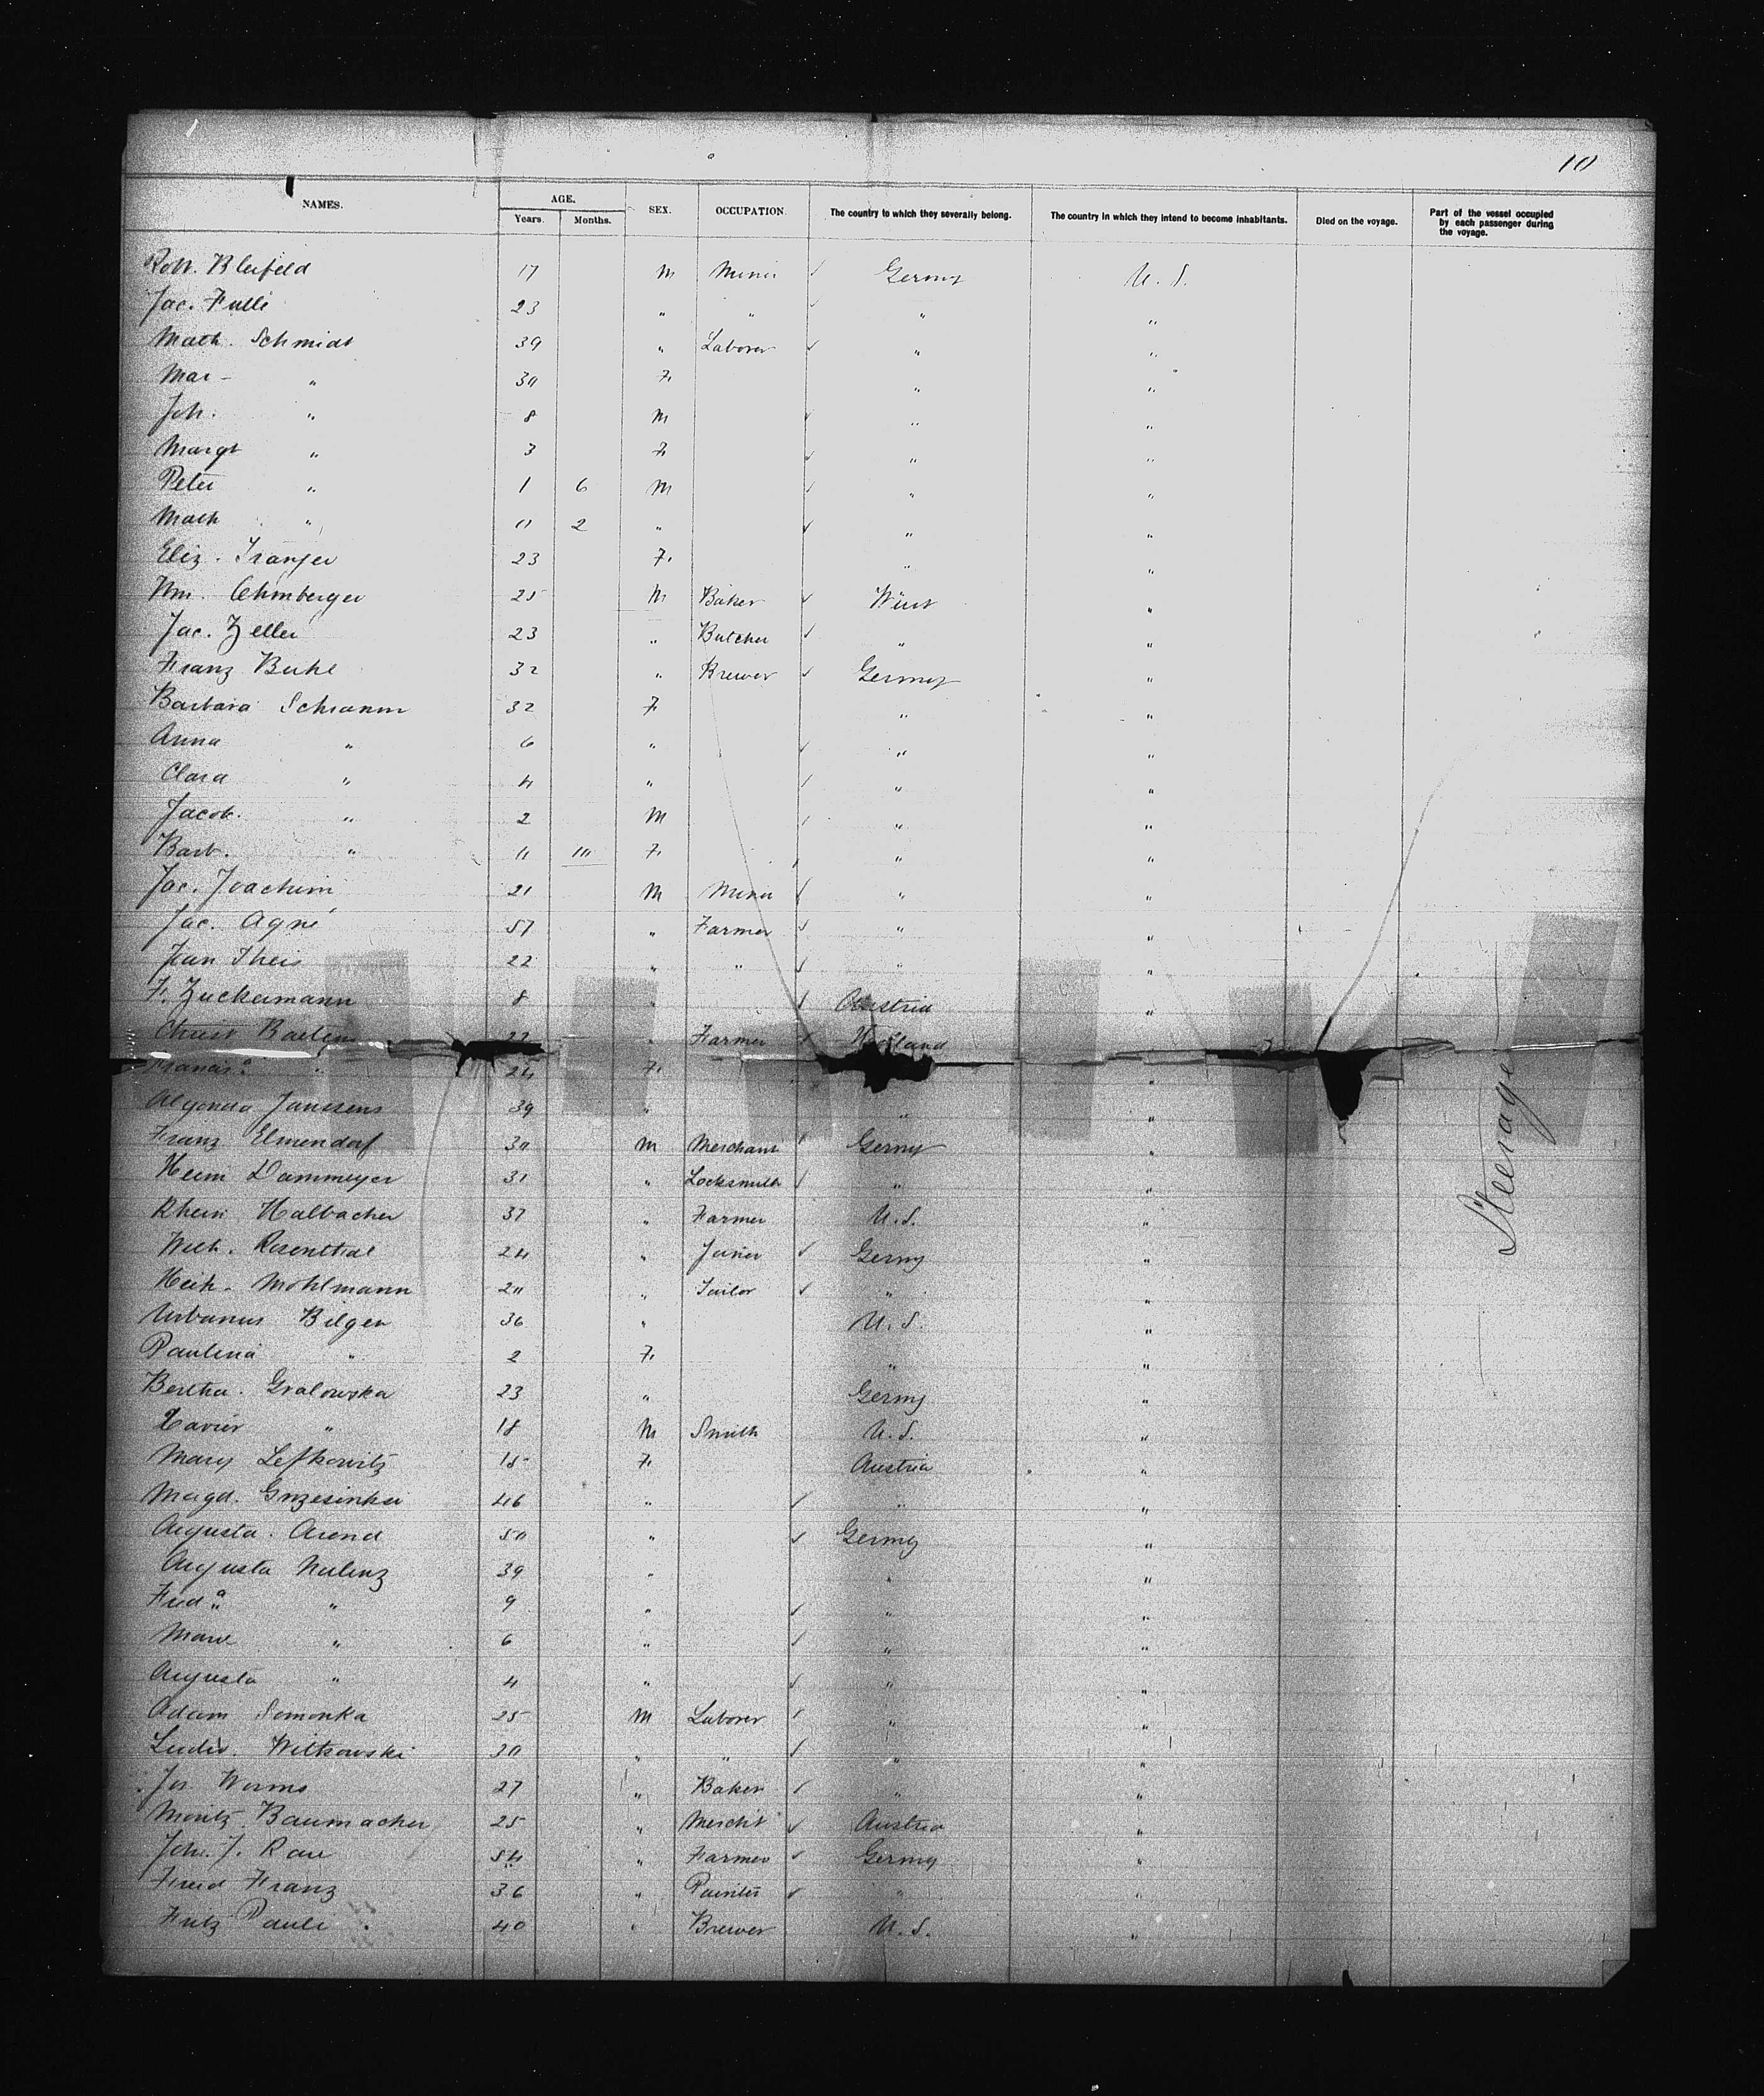 10
NAMES. AGE. Years. Months. SEX. OCCUPATION. The country to which they severally belong. The country in which they intend to become inhabitants. Died on the voyage. Part of the vessel occupied by each passenger during the voyage.
Robt. Bleifeld 17 M Miner ✓ Germy U. S.
Jac. Fulli 23 " " ✓ " "
Math. Schmidt 39 " Laborer ✓ " "
Mar - " 30 F. " "
Joh. " 8 M ✓ " "
Margt " 3 F. ✓ " "
Peter " 1 6 M ✓ " "
Math " 0 2 " ✓ " "
Eliz. 23 F. " "
Wm. Ehmberger 25 M Baker ✓ Würt "
Jac. Zeller 23 " Butcher ✓ " "
Franz Buhl 32 " Brewer ✓ Germy "
Barbara Schramm 32 F. " "
Anna " 6 " ✓ " "
Clara " 4 " ✓ " "
Jacob. " 2 M ✓ " "
Barb. " 0 10 F. ✓ " "
Jac. Joachim 21 M Miner ✓ " "
Jac. Agne 57 " Farmer ✓ " "
Jean Theis 22 " " ✓ " "
F. Zuckermann 8 " ✓ Austria "
Christ 22 " Farmer ✓ Holland
Francisa " 24 F. "
Algonda Janssens 39 " " "
Franz Elmendorf 30 M Merchant ✓ Germy "
Heinr Dammeyer 31 " Locksmith ✓ " "
Rhein Halbacher 37 " Farmer U. S. "
Wilh. Rosenthal 24 " Joiner ✓ Germy "
Heih. Mohlmann 20 " Tailor ✓ " "
Urbanus Bilger 36 " U. S. "
Paulina " 2 F. " "
Bertha. Gralowska 23 " Germy "
Xavier " 18 M Smith U. S. "
Mary Lefkowitz 18 F. Austria "
Magd. Grzesinksi 46 " ✓ " "
Augusta. Arend 50 " ✓ Germy "
Augusta Nulenz 39 " " "
Frieda " 9 " ✓ " "
Marie " 6 " ✓ " "
Augusta " 4 " ✓ " "
Adam Somonka 25 M Laborer ✓ " "
Ludw. Witkowski 30 " " ✓ " "
Jos Worms 27 " Baker ✓ " "
Moritz. Baumacher 25 " Mercht ✓ Austria "
Joh. J. Rau 54 " Farmer ✓ Germy "
Fried Franz 36 " Painter ✓ " "
Fritz Pauli 40 " Brewer U. S. "
Steerage